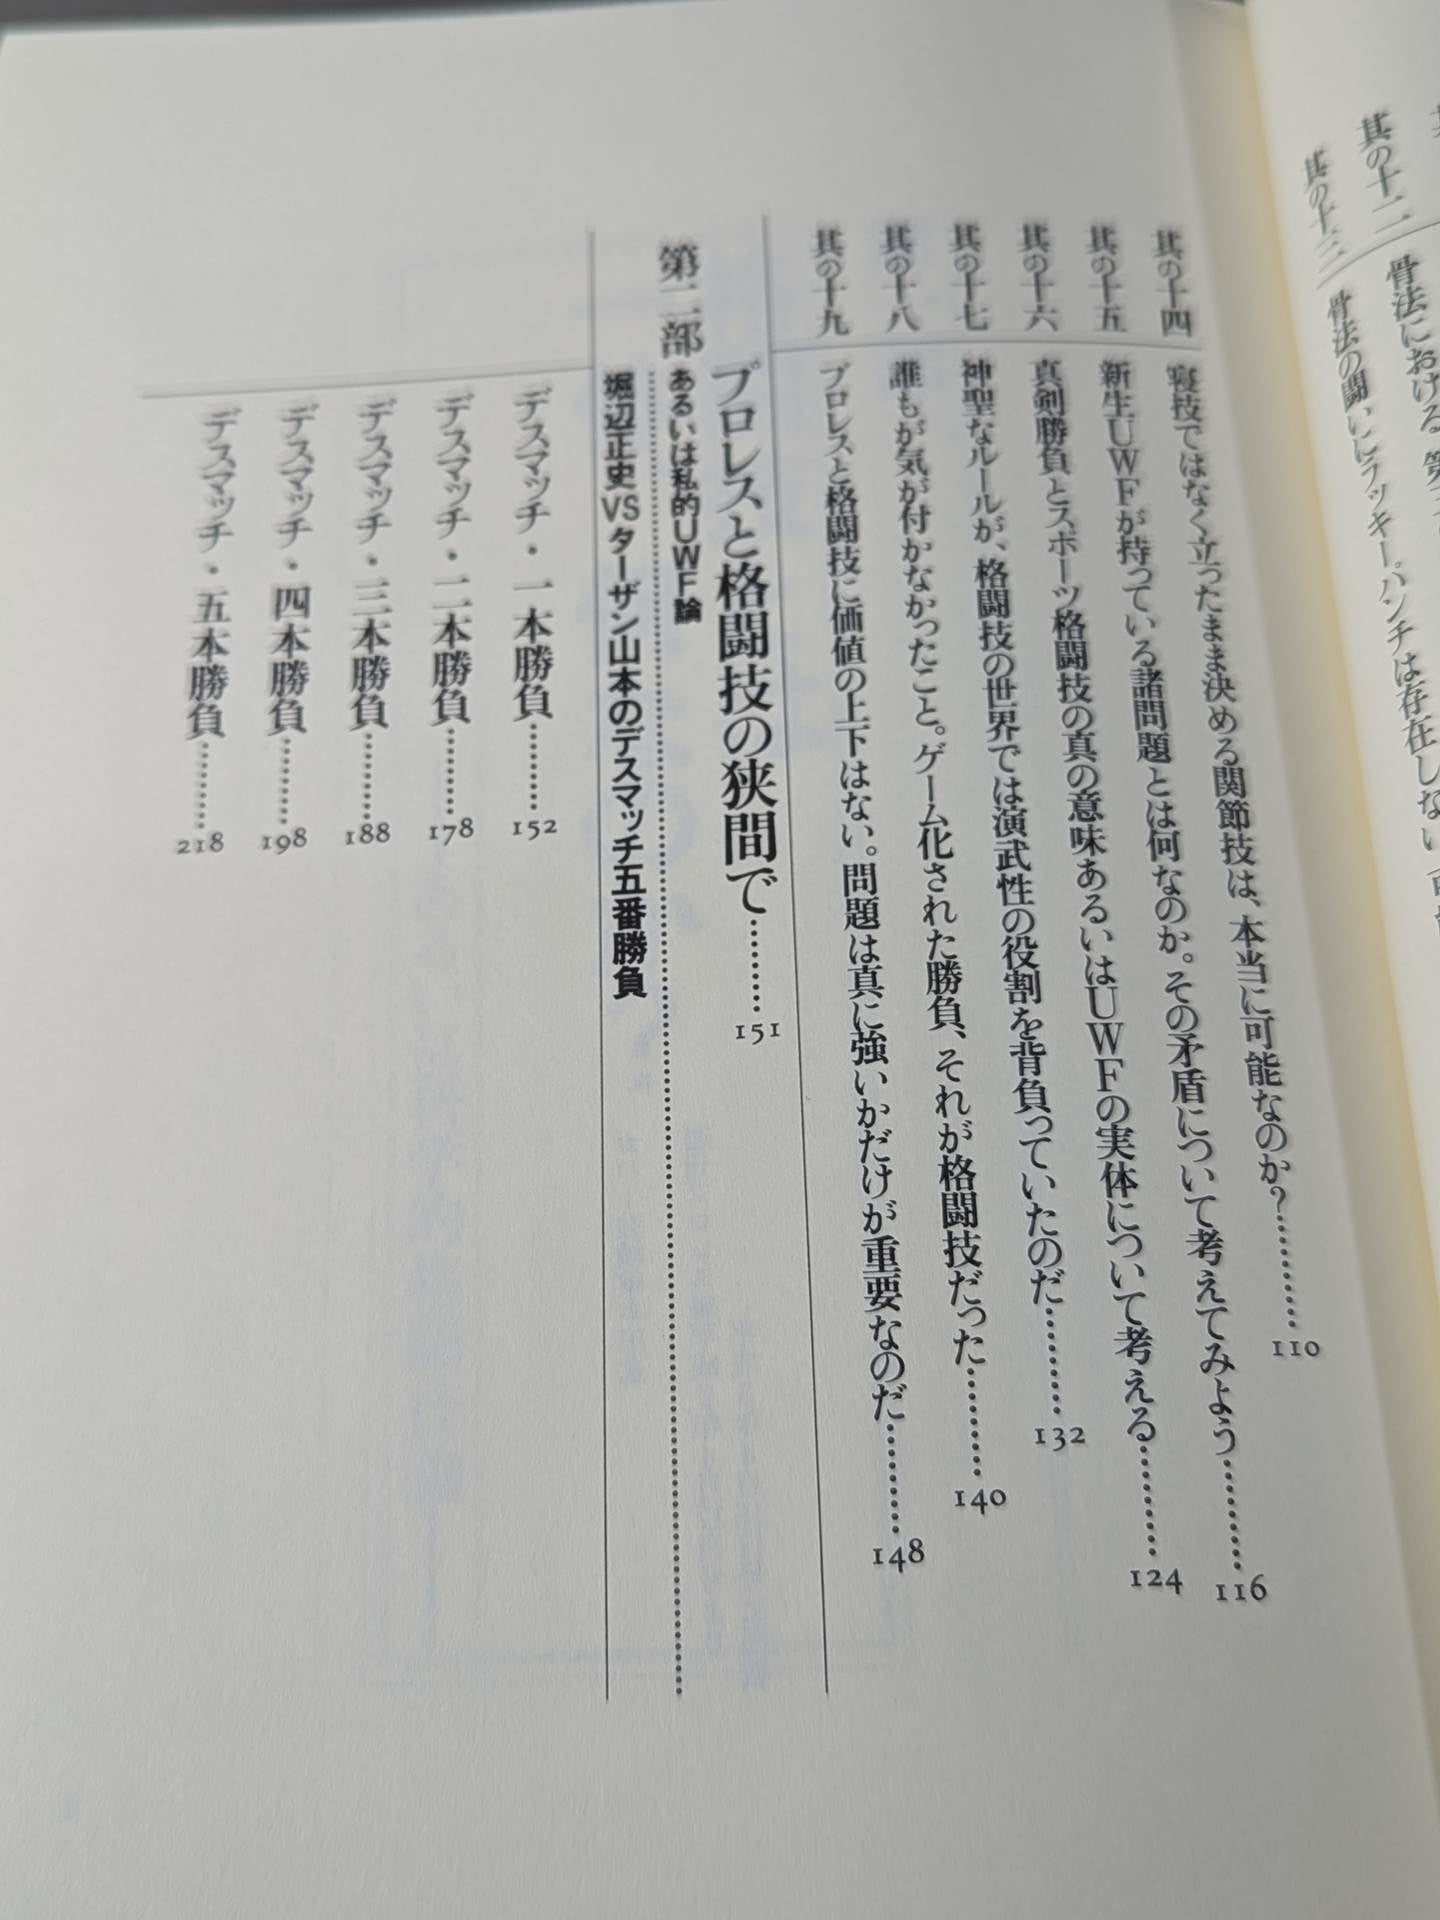 其の十二 骨法における、第
其の十三 骨法の闘いにラッキーパンチは存在しない。
其の十四 寝技ではなく立ったまま決める関節技は、本当に可能なのか?………110
其の十五 新生UWFが持っている諸問題とは何なのか。その矛盾について考えてみよう………116
其の十六 真剣勝負とスポーツ格闘技の真の意味あるいはUWFの実体について考える………124
其の十七 神聖なルールが、格闘技の世界では演武性の役割を背負っていたのだ………132
其の十八 誰もが気が付かなかったこと。ゲーム化された勝負、それが格闘技だった………140
其の十九 プロレスと格闘技に価値の上下はない。問題は真に強いかだけが重要なのだ………148
第二部 プロレスと格闘技の狭間で………151
あるいは私的UWF論
堀辺正史VSターザン山本のデスマッチ五番勝負
デスマッチ・一本勝負………152
デスマッチ・二本勝負………178
デスマッチ・三本勝負………188
デスマッチ・四本勝負………198
デスマッチ・五本勝負………218